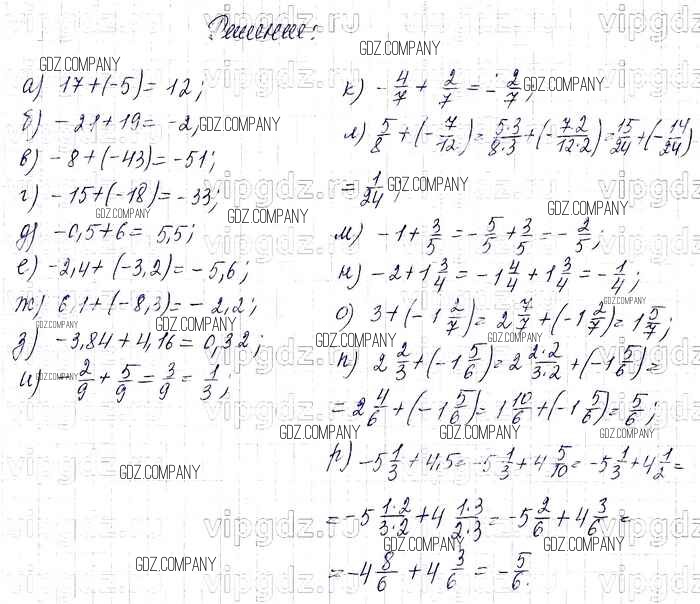 Решение:
а) 17+(-5)= 12;
б) -21+19= -2,
в) -8+(-43)= -51;
г) -15+(-18)= -33;
д) -0,5+6= 5,5;
е) -2,4+(-3,2)= -5,6;
ж) 6,1+(-8,3)= -2,2;
з) -3,84+4,16= 0,32;
и) -2/9 + 5/9 = 3/9 = 1/3;
к) -4/7 + 2/7 = -2/7;
л) 5/8 +(-7/12)= 5·3/8·3 +(-7·2/12·2)= 15/24 +(-14/24)
= 1/24;
м) -1+ 3/5 = -5/5 + 3/5 = -2/5;
н) -2+1 3/4 = -1 4/4 + 1 3/4 = -1/4;
о) 3+(-1 2/7)= 2 7/7 +(-1 2/7)= 1 5/7;
п) 2 2/3 +(-1 5/6)= 2 2·2/3·2 +(-1 5/6)=
= 2 4/6 +(-1 5/6)= 1 10/6 +(-1 5/6)= 5/6;
р) -5 1/3 + 4,5= -5 1/3 + 4 5/10 = -5 1/3 + 4 1/2 =
= -5 1·2/3·2 + 4 1·3/2·3 = -5 2/6 + 4 3/6 =
= -4 8/6 + 4 3/6 = -5/6.
GDZ.COMPANY
vipgdz.ru